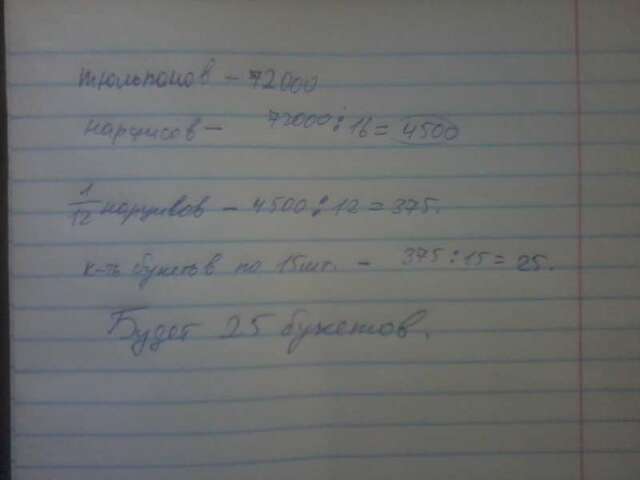 тюльпанов - 72000
нарцисов - 72000 : 16 = 4500
1/12 нарцизов - 4500 : 12 = 375.
к-ть букетів по 15 шт. - 375 : 15 = 25.
Будет 25 букетов.